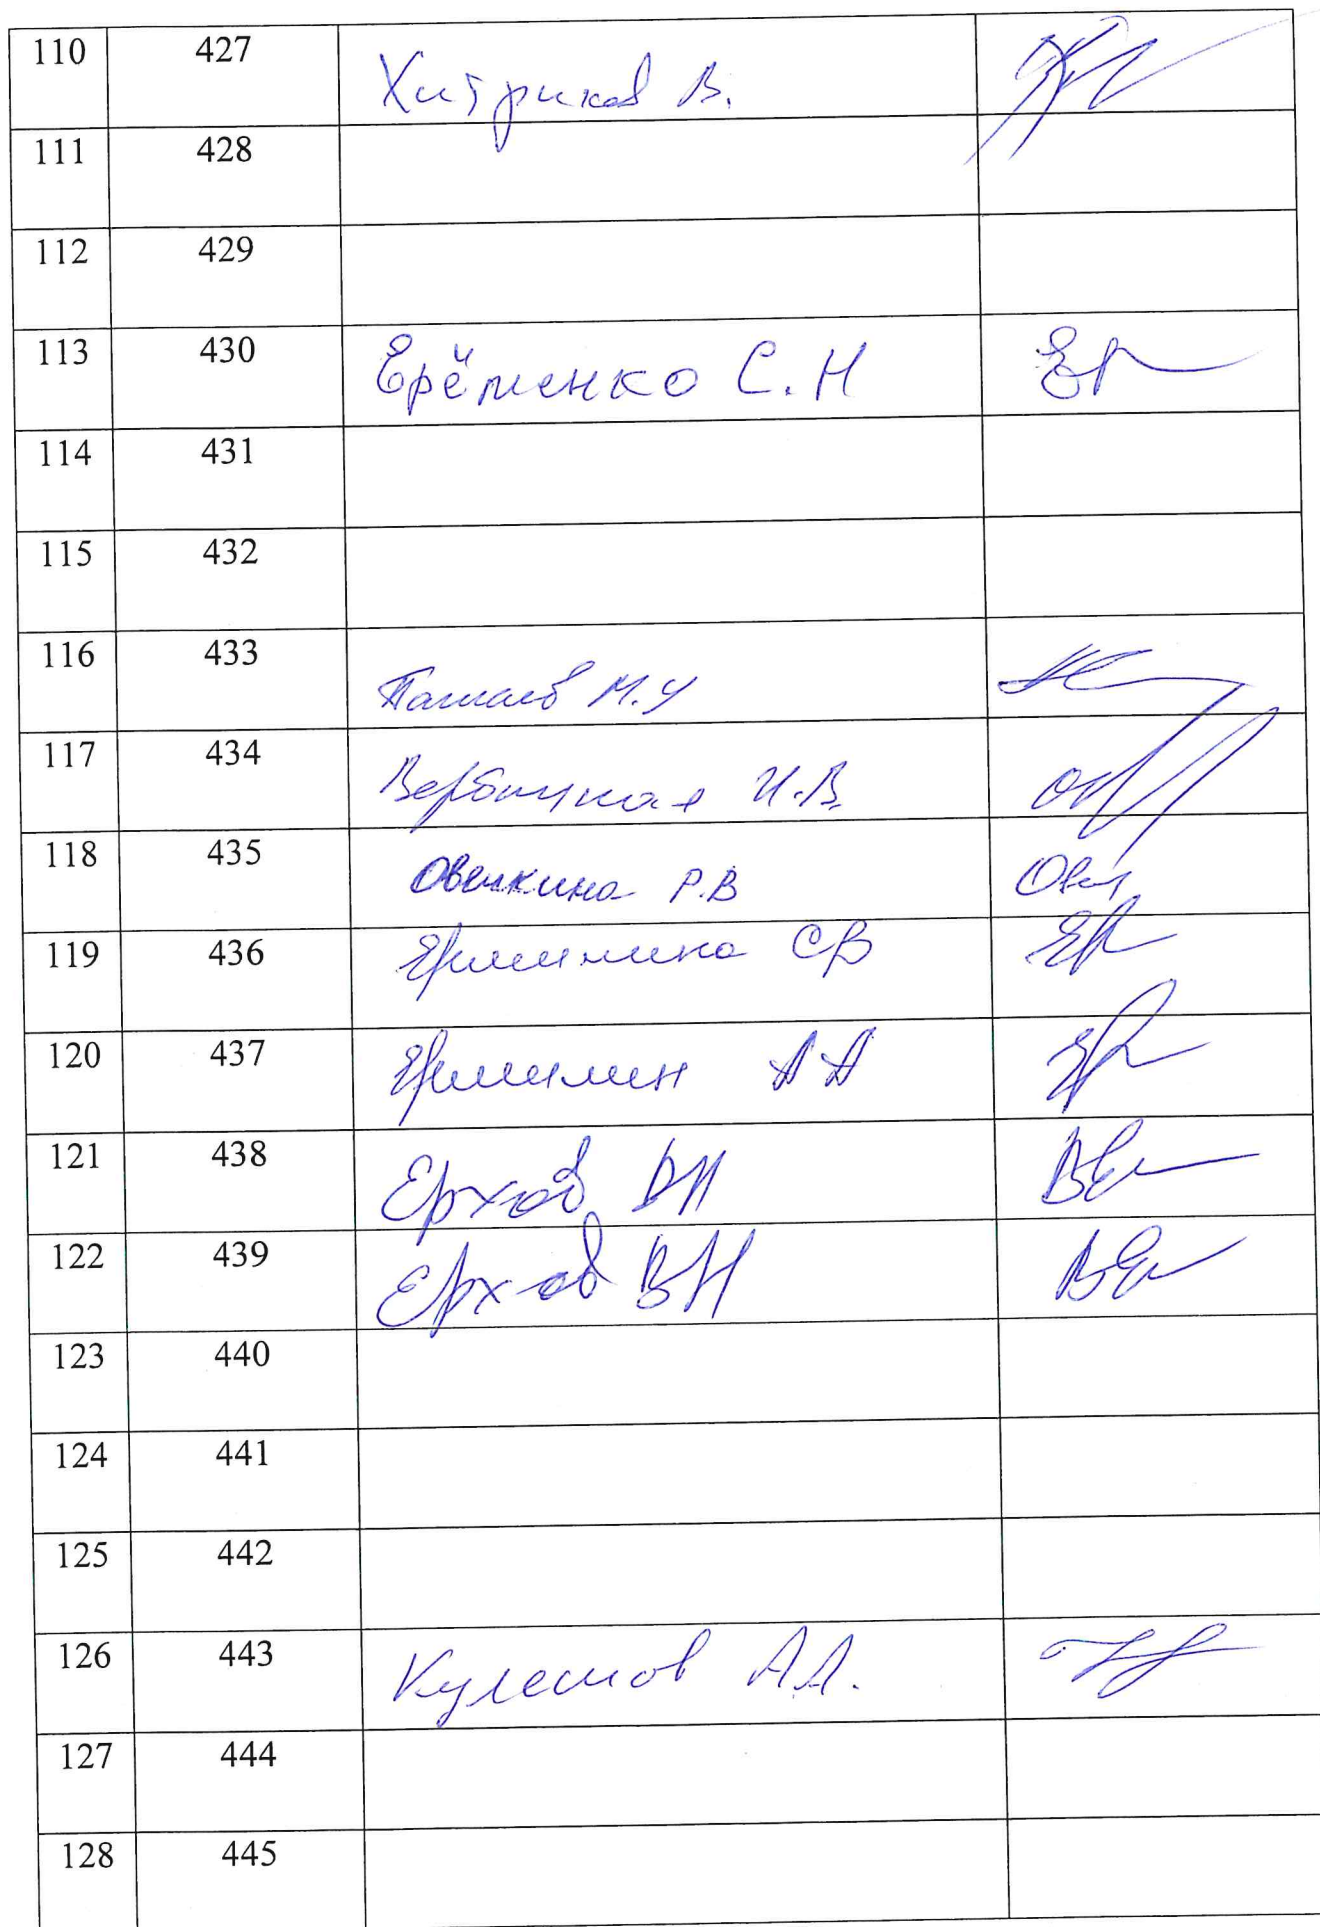 110 427 Хитриков В.
111 428
112 429
113 430 Ерёменко С.Н
114 431
115 432
116 433 Пашаев М.У
117 434 Вербицкая И.В.
118 435 Овечкина Р.В
119 436 СВ
120 437 АА
121 438 Ерхов ВН
122 439 Ерхов ВН
123 440
124 441
125 442
126 443 Кулешов А.А.
127 444
128 445